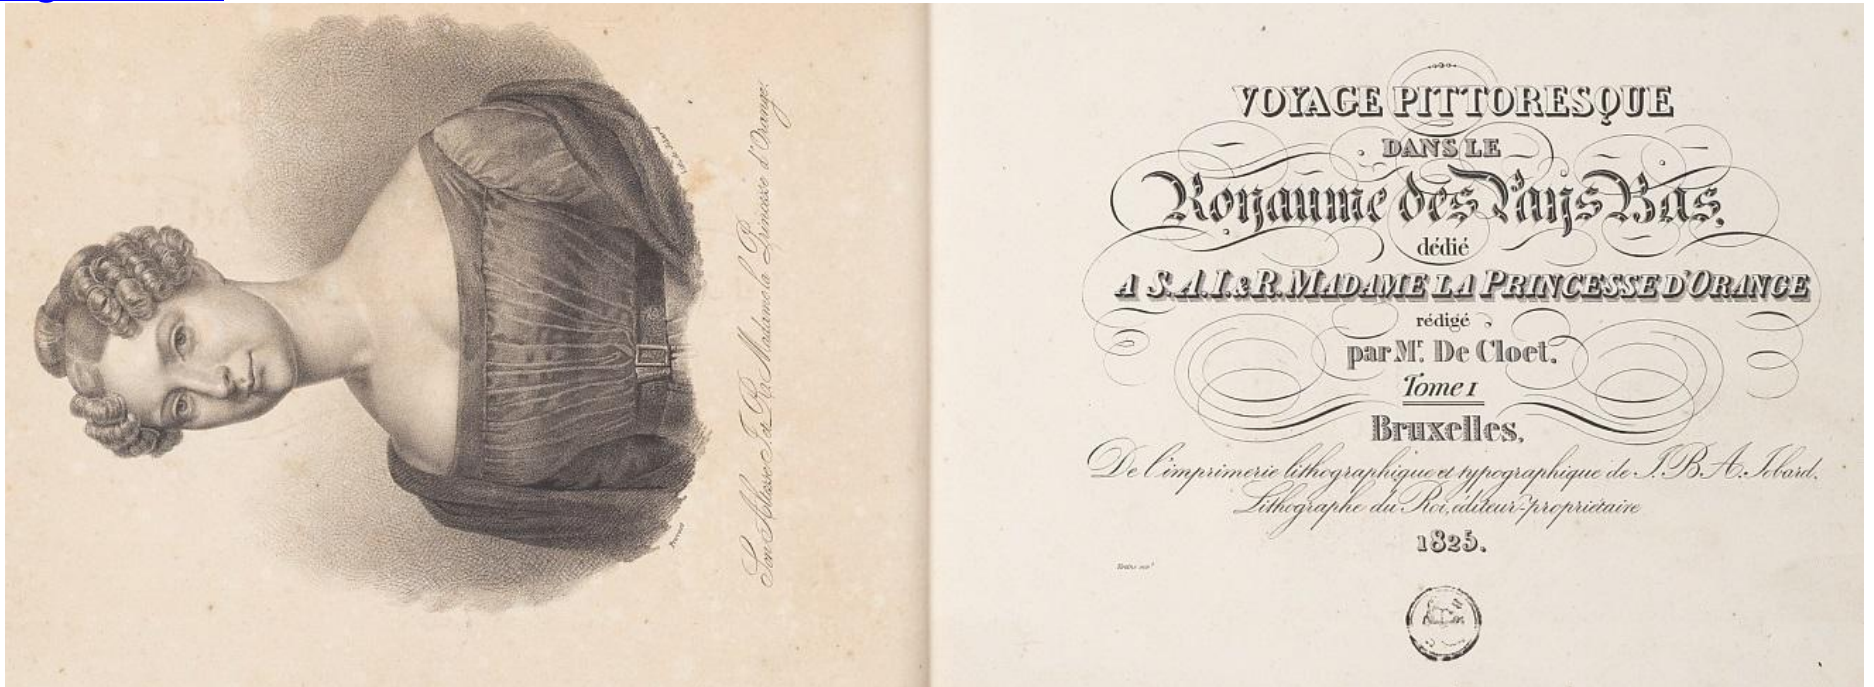 Lith. de Jobard
Son Altesse I. et R. Madame la Princesse d'Orange.
VOYAGE PITTORESQUE
DANS LE
Royaume des Pays Bas,
dédié
A S.A.I.&R. MADAME LA PRINCESSE D'ORANGE
rédigé
par Mr. De Cloet.
Tome I
Bruxelles,
De l'imprimerie lithographique et typographique de J. B. A. Jobard,
Lithographe du Roi, éditeur-propriétaire
1825.